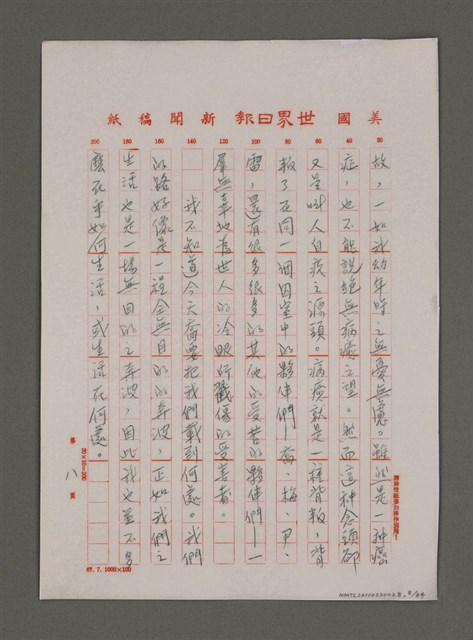 美國世界日報新聞稿紙
20 40 60 80 100 120 140 160 180 200
故，一如我幼年時之無憂無慮。雖然是一种癮
症，也不能說絕無病癒之望。然而這种念頭卻
又是叫人自疚之源頭。病癒就是一種背叛，背
叛了在同一個囚室中的夥伴們—喬、梅、尹、
雷，還有很多很多的其他的受苦的夥伴們—一
羣無辜地為世人的冷眼所戳傷的受害者。
我不知道今天喬要把我們載到何處。我們
的路好像是一程全無目的的奔波，正如我們之
生活也是一場無目的之奔波，因此我也並不多
麼在乎如何生活，或生活在何處。
第 八 頁
20×10=200